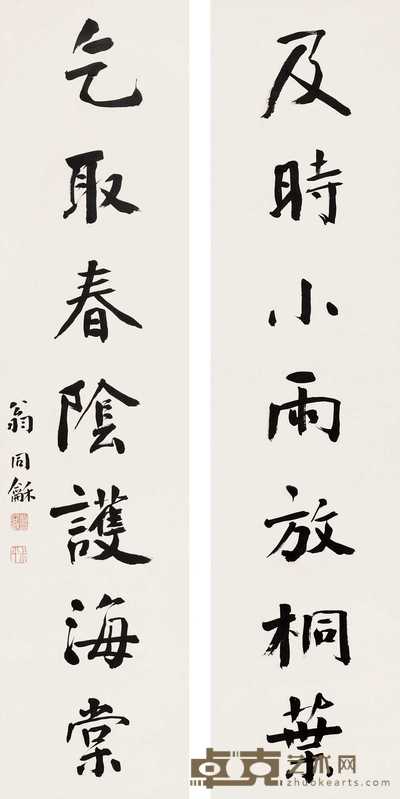 及時小雨放桐葉
乞取春陰護海棠
翁同龢
卓克艺术网
zhuokearts.com